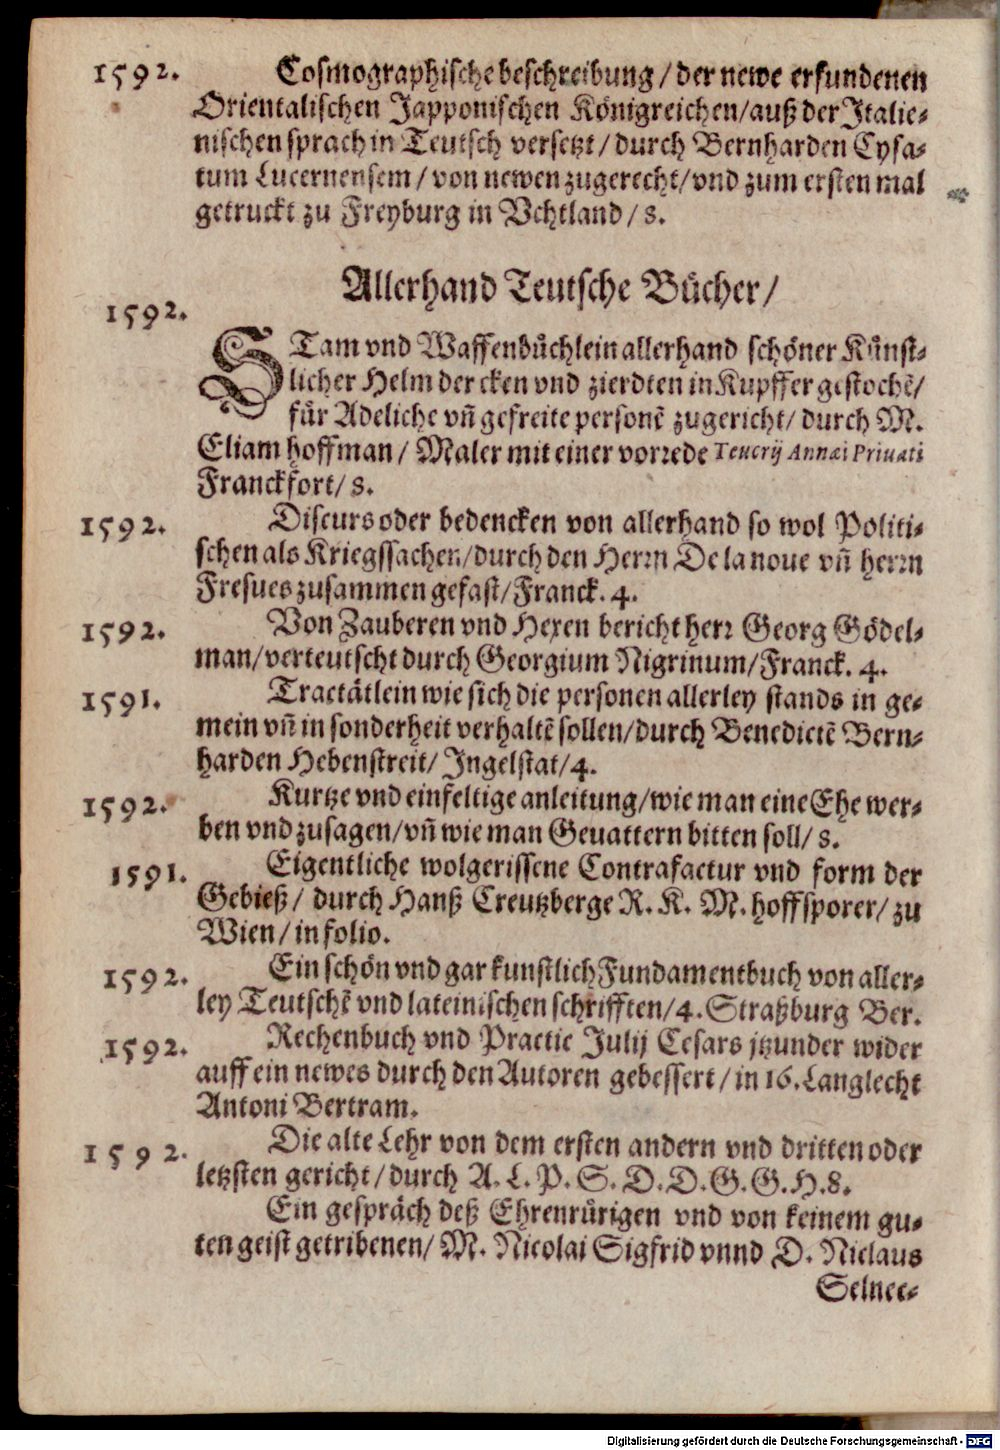 1592. Cosmographische beschreibung / der newe erfundenen
Orientalischen Japponischen Königreichen/auß der Italie⸗
nischen sprach in Teutsch versetzt / durch Bernharden Cysa⸗
tum Lucernensem / von newen zugerecht/vnd zum ersten mal
getruckt zu Freyburg in Vchtland / 8.
Allerhand Teutsche Bücher/
1592. STam vnd Waffenbüchlein allerhand schöner Künst⸗
licher Helm der cken vnd zierdten in Kupffer gestochẽ/
für Adeliche vñ gefreite personẽ zugericht/ durch M.
Eliam hoffman / Maler mit einer vorrede Teucrij Annæi Priuati
Franckfort/ 8.
1592. Discurs oder bedencken von allerhand so wol Politi⸗
schen als Kriegssachen/durch den Herrn De la noue vñ herrn
Fresues zusammen gefast/Franck. 4.
1592. Von Zauberen vnd Hexen bericht herr Georg Gödel⸗
man/verteutscht durch Georgium Nigrinum/Franck. 4.
1591. Tractätlein wie sich die personen allerley stands in ge⸗
mein vñ in sonderheit verhaltẽ sollen/durch Benedictẽ Bern⸗
harden Hebenstreit/ Ingelstat/4.
1592. Kurtze vnd einfeltige anleitung/wie man eine Ehe wer⸗
ben vnd zusagen/vñ wie man Geuattern bitten soll/ 8.
1591. Eigentliche wolgerissene Contrafactur vnd form der
Gebieß/ durch Hanß Creutzberge R. K. M. hoffsporer/ zu
Wien / in folio.
1592. Ein schön vnd gar kunstlich Fundamentbuch von aller⸗
ley Teutschẽ vnd lateinischen schrifften/4. Straßburg Ber.
1592. Rechenbuch vnd Practic Julij Cesars jtzunder wider
auff ein newes durch den Autoren gebessert / in 16. Langlecht
Antoni Bertram.
1592. Die alte Lehr von dem ersten andern vnd dritten oder
letzsten gericht / durch A. L. P. S. D. D. G. G. H. 8.
Ein gespräch deß Ehrenrürigen vnd von keinem gu⸗
ten geist getribenen/ M. Nicolai Sigfrid vnnd D. Niclaus
Selnec⸗
Digitalisierung gefördert durch die Deutsche Forschungsgemeinschaft - DFG